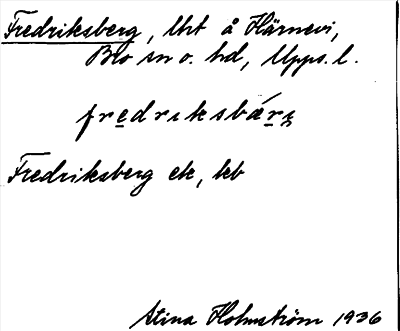 Fredriksberg, lht å Härnevi,
Bro sn o. hd, Upps. l.
fredriksbærj
Fredriksberg ek, kb
Stina Holmström 1936